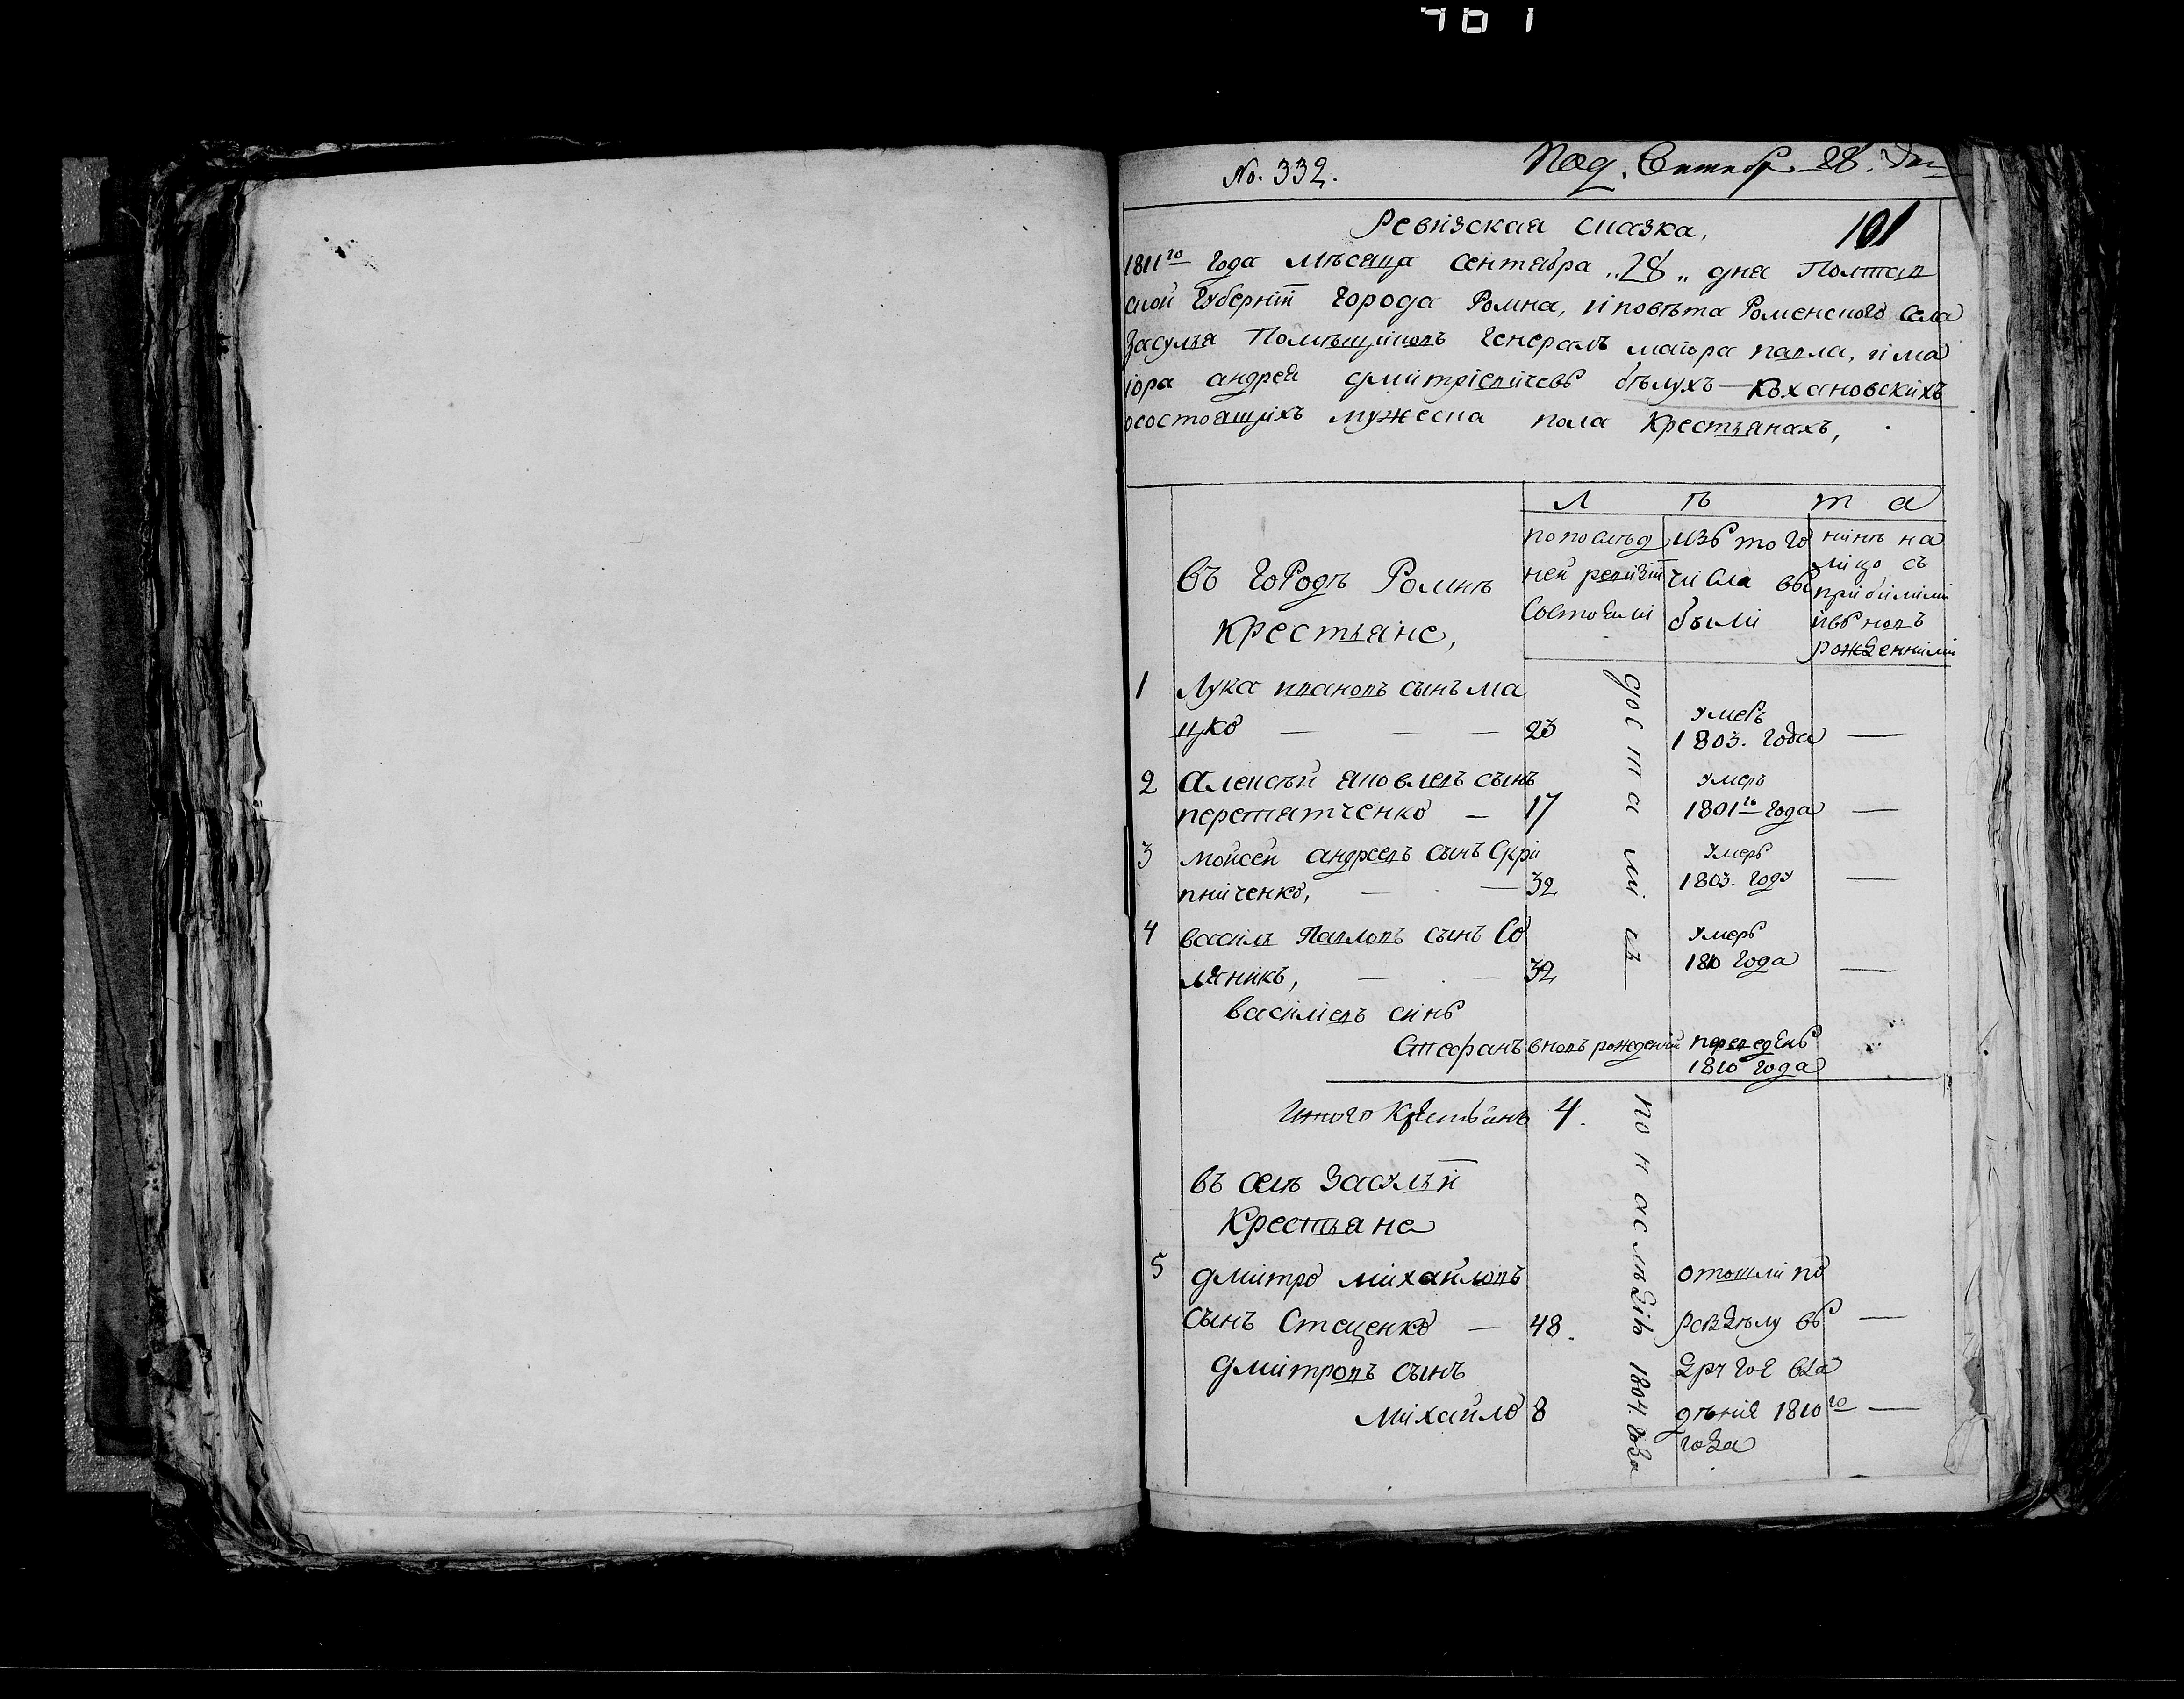 No. 332.
Под. Сентябр 28. дня
101
Ревизская сказка,
1811го Года мѣсяца сентября „28„ дня Полтав
ской Губернiи Города Ромна, и повѣта Роменского Села
Засулья Помѣщиковъ Генералъ маiора павла, и ма
iора андрея дмитрiевичевъ бѣлухъ-Кохановскихъ
осостоящихъ мужеска пола Крестьянахъ,
Л ѣ т а
въ Городѣ Ромнѣ
крестьяне,
попослѣд
ней ревизiи
Состояли
изъ того
числа вы
были
нинѣ на
лицо съ
прибилими
и вновъ
рожденними
1 Лука ивановъ сынъ ма
цко — — — 23 умеръ 1803. года —
2 алексѣй яковлевъ сынъ
перетятченко — 17 умеръ 1801го года —
3 мойсей андреевъ сынъ Скри
пниченко, — — 32 умеръ 1803. году —
4 василь Павловъ сынъ Со
ляникъ, — — 32 умеръ 1810 года —
василiевъ синъ
Стефанъ вновъ рожденнiй переведенъ
1810 года
достались
Итого Крестьянъ 4.
въ селѣ Засульи
Крестьяне
5 дмитро михайловъ
сынъ Стеценко — 48. —
дмитровъ сынъ
Михайло 8 —
по наслѣдiю 1804. года
отошли по
разделу въ
другое вла
дѣнiе 1810го
года